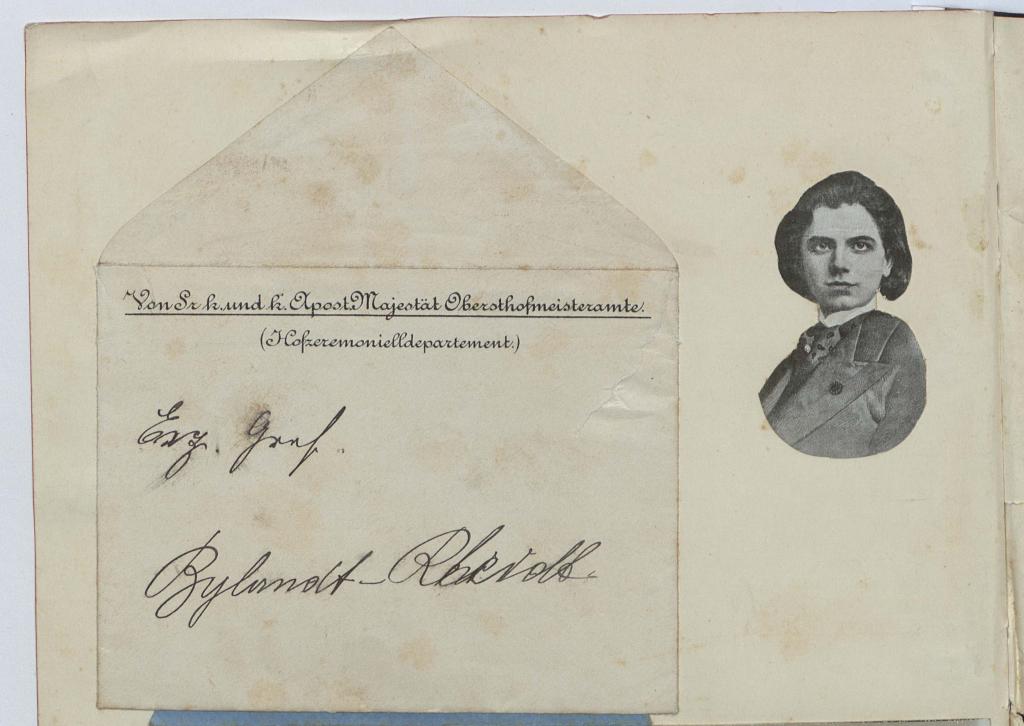 Von Sr. k. und k. Apost. Majestät Obersthofmeisteramte.
(Hofzeremonielldepartement.)
Exz. Graf.
Bylandt-Rheidt.